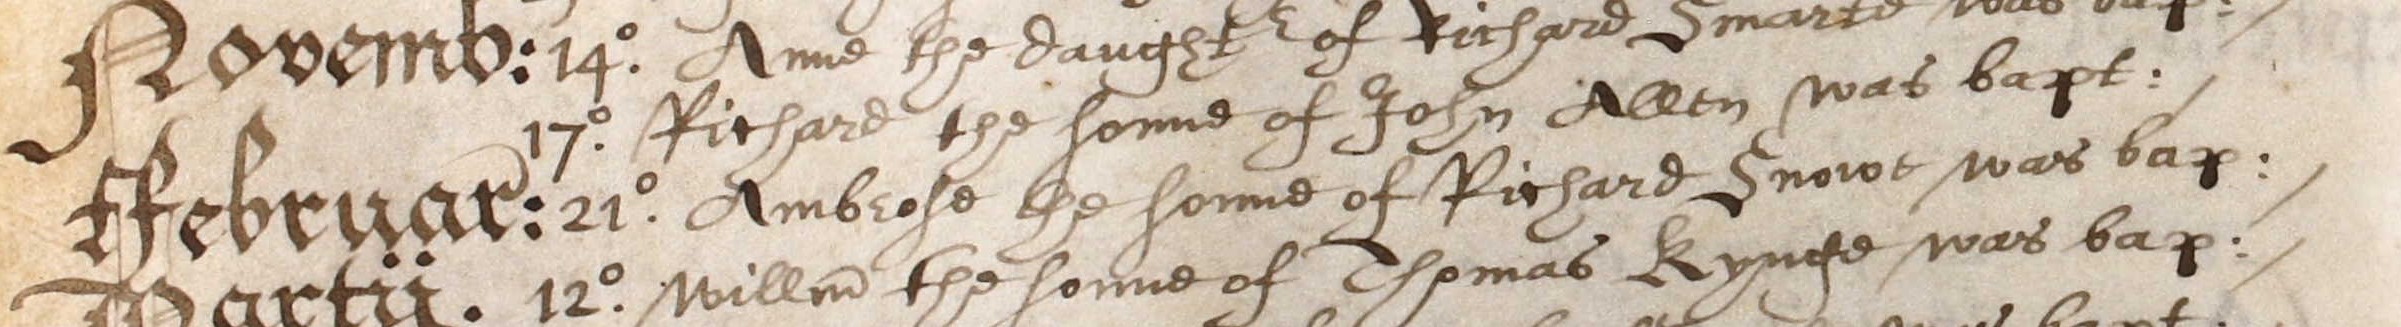 Novemb: 14°. Anne the daught^r of Richard Smarte was bap:
17°. Richard the sonne of John Allen was bapt:
ffebruar: 21°. Ambrose the sonne of Richard Snowe was bap:
Martii. 12°. Willm the sonne of Thomas Kynge was bap: